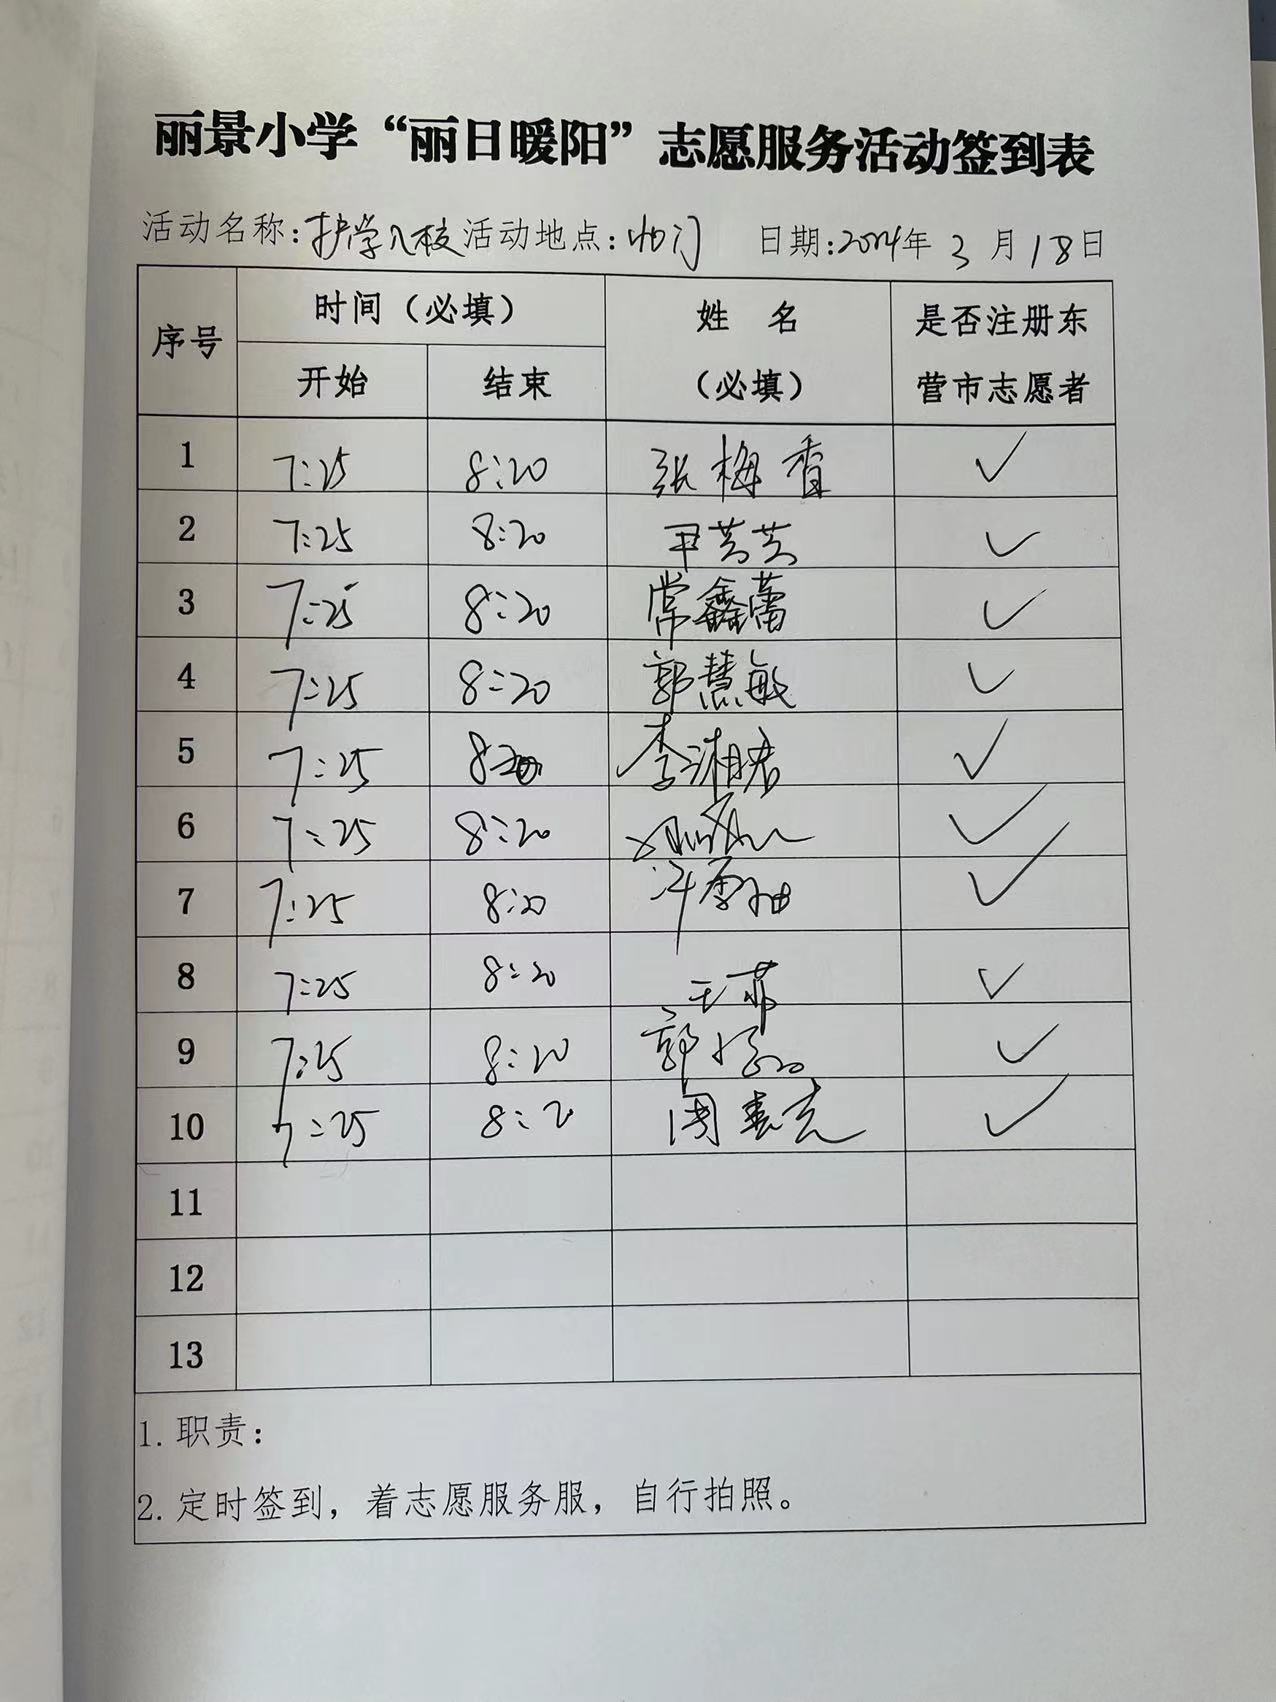 丽景小学“丽日暖阳”志愿服务活动签到表
活动名称:护学入校 活动地点:北门 日期:2024年 3 月 18日
序号 时间（必填） 姓 名 是否注册东
开始 结束 （必填） 营市志愿者
1 7:25 8:20 张梅香 ✓
2 7:25 8:20 尹芸芸 ✓
3 7:25 8:20 常鑫蕾 ✓
4 7:25 8:20 郭慧敏 ✓
5 7:25 8:20 李湘君 ✓
6 7:25 8:20 ✓
7 7:25 8:20 ✓
8 7:25 8:20 王菲 ✓
9 7:25 8:20 郭 ✓
10 7:25 8:20 周 ✓
11
12
13
1. 职责:
2. 定时签到，着志愿服务服，自行拍照。